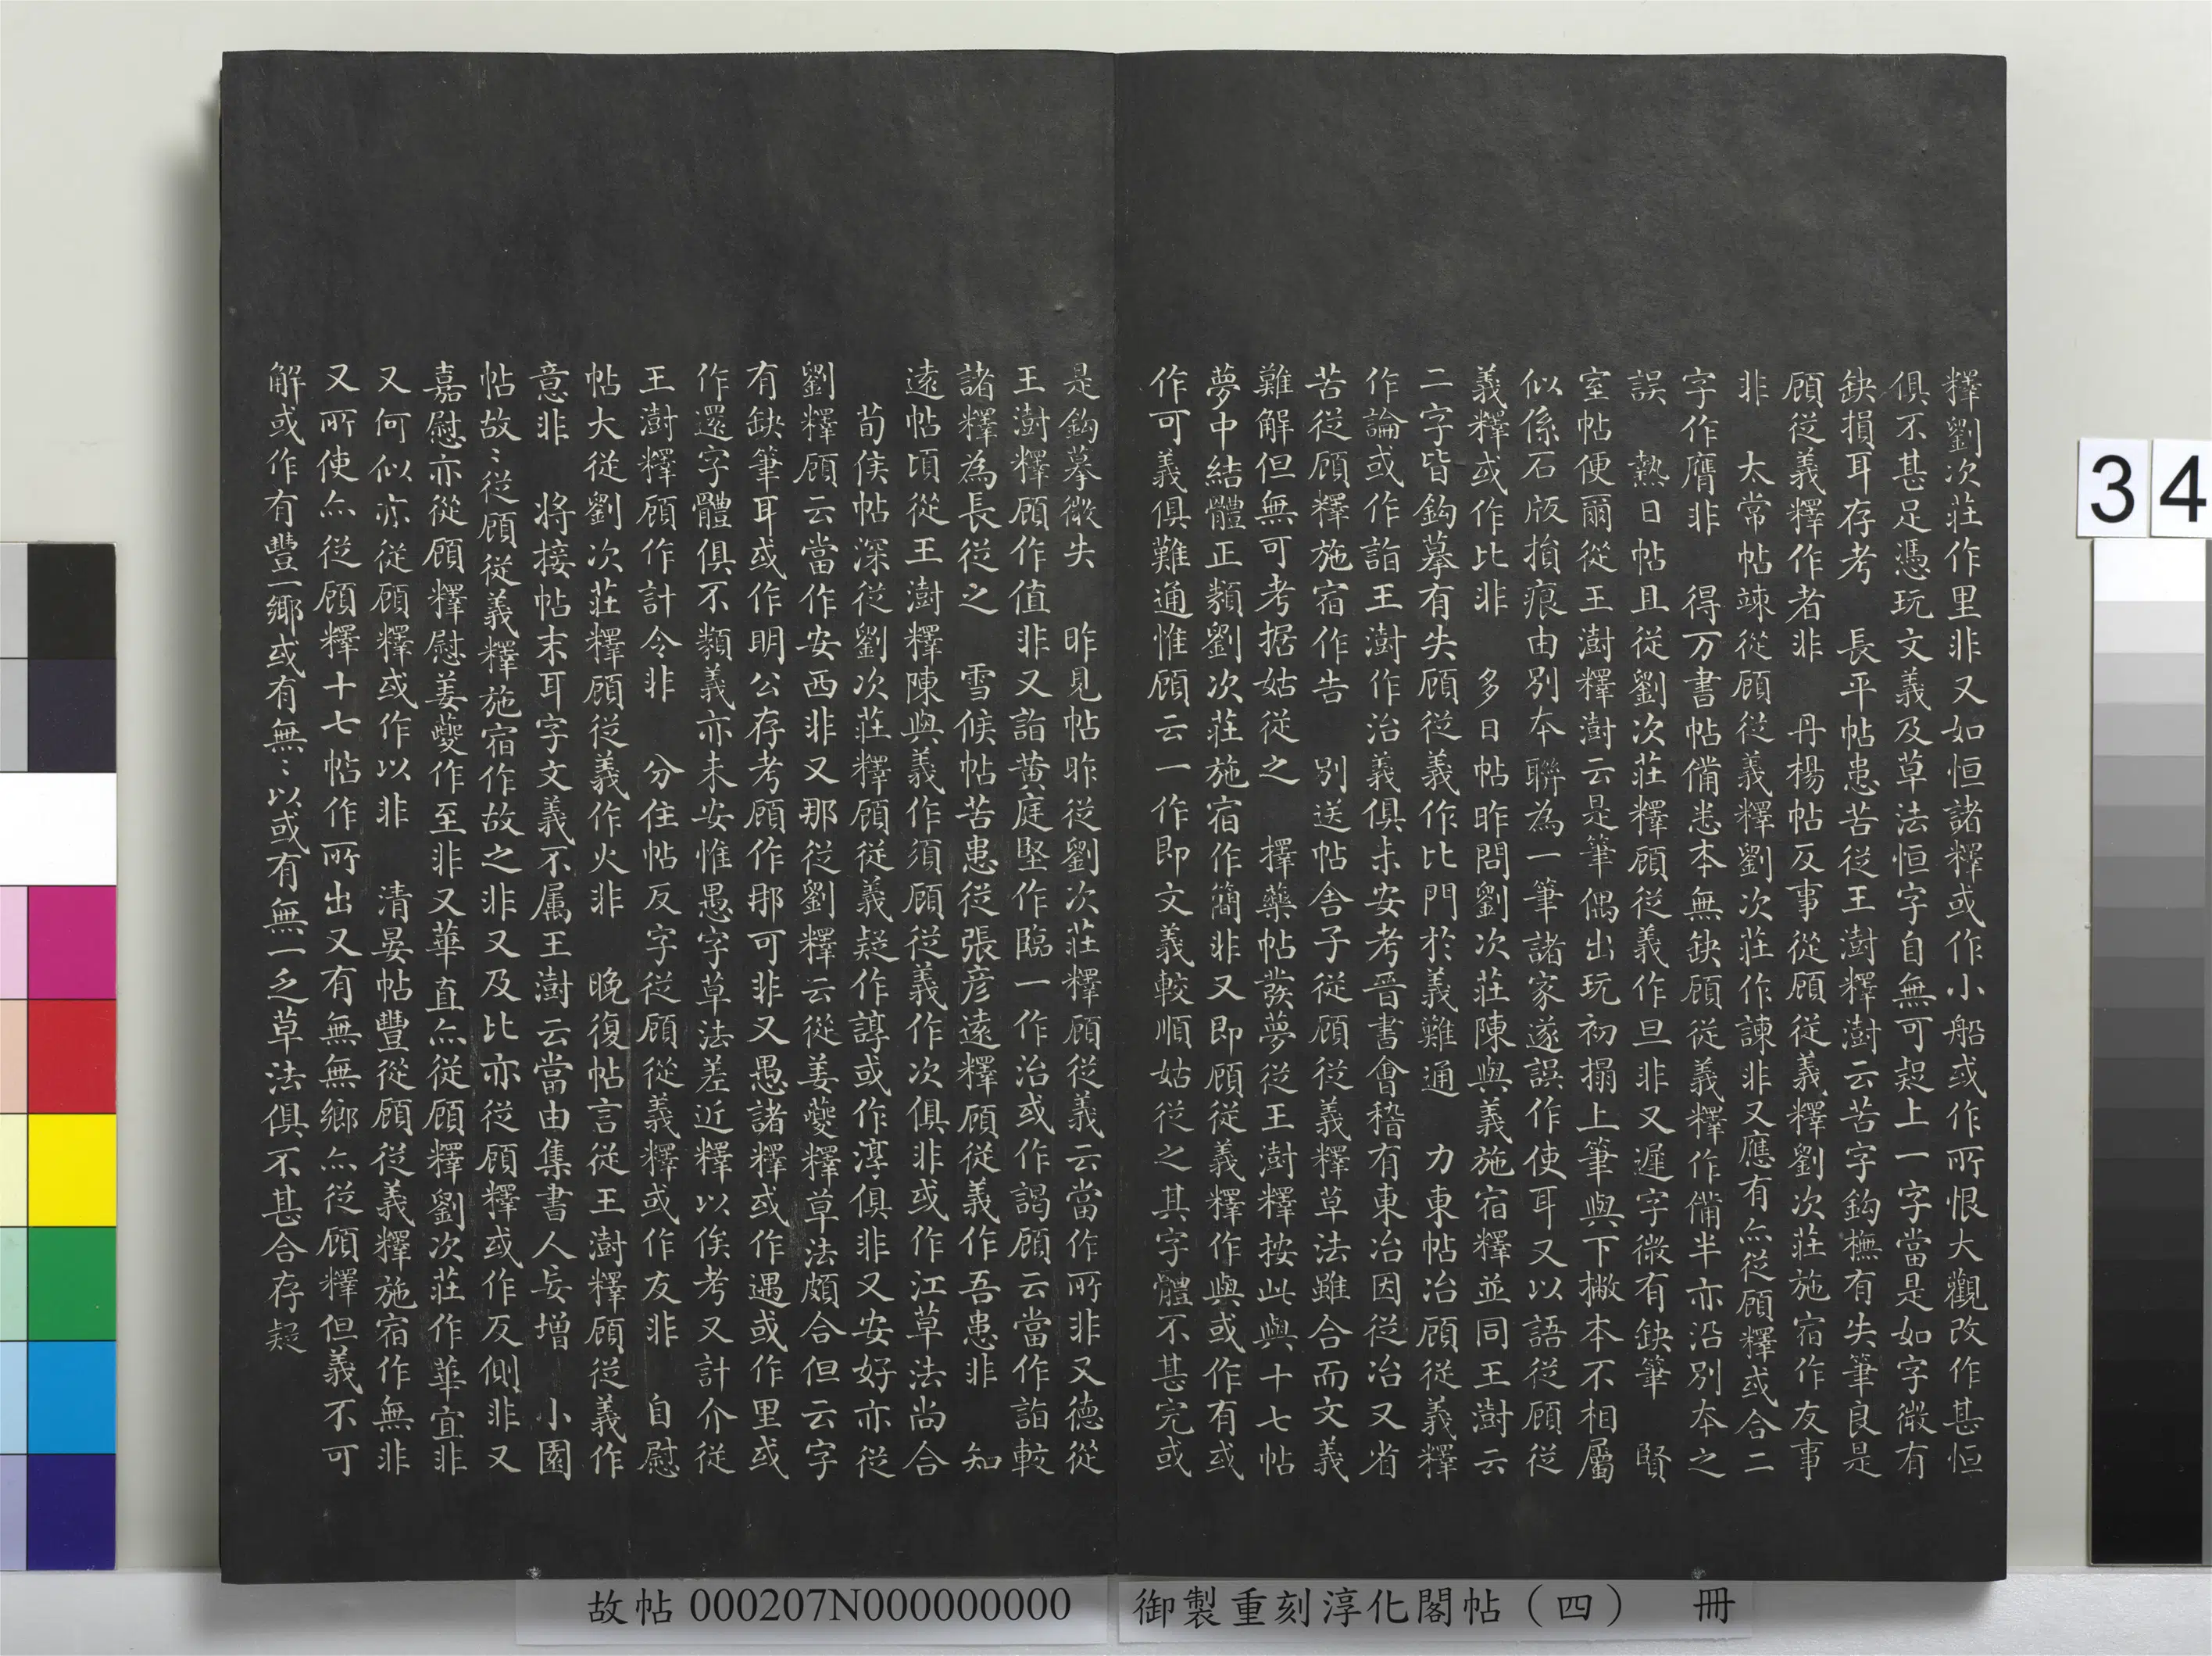 釋劉次莊作里非又如恒諸釋或作小船或作所恨大觀改作甚恒
俱不甚足憑玩文義及草法恒字自無可疑上一字當是如字微有
缺損耳存考　長平帖患苦從王澍釋澍云苦字鈎橅有失筆良是
顧從義釋作者非　丹楊帖反事從顧從義釋劉次莊施宿作友事
非　太常帖竦從顧從義釋劉次莊作諫非又應有亦從顧釋或合二
字作膺非　得万書帖備悉本無缺顧從義釋作備半亦沿別本之
誤　熱日帖且從劉次莊釋顧從義作旦非又遲字微有缺筆　賢
室帖便爾從王澍釋澍云是筆偶出玩初搨上筆與下撇本不相屬
似係石版損痕由別本聯為一筆諸家遂誤作使耳又以語從顧從
義釋或作比非　多日帖昨問劉次莊陳與義施宿釋並同王澍云
二字皆鈎摹有失顧從義作比門於義難通　力東帖冶顧從義釋
作論或作詣王澍作治義俱未安考晉書會稽有東冶因從冶又省
苦從顧釋施宿作告　別送帖舍子從顧從義釋草法雖合而文義
難解但無可考据姑從之　擇藥帖發夢從王澍釋按此與十七帖
夢中結體正類劉次莊施宿作簡非又即顧從義釋作與或作有或
作可義俱難通惟顧云一作即文義較順姑從之其字體不甚完或
是鈎摹微失　昨見帖昨從劉次莊釋顧從義云當作所非又德從
王澍釋顧作值非又詣黄庭堅作臨一作治或作謁顧云當作詣較
諸釋為長從之　雪候帖苦患從張彦遠釋顧從義作吾患非　知
遠帖頃從王澍釋陳與義作須顧從義作次俱非或作江草法尚合
　荀侯帖深從劉次莊釋顧從義疑作諄或作淳俱非又安好亦從
劉釋顧云當作安西非又那從劉釋云從姜夔釋草法頗合但云字
有缺筆耳或作明公存考顧作那可非又愚諸釋或作遇或作里或
作還字體俱不類義亦未安惟愚字草法差近釋以俟考又計介從
王澍釋顧作計令非　分住帖反字從顧從義釋或作友非　自慰
帖大從劉次莊釋顧從義作火非　晚復帖言從王澍釋顧從義作
意非　將接帖末耳字文義不属王澍云當由集書人妄增　小園
帖故〻從顧從義釋施宿作故之非又及比亦從顧釋或作反側非又
嘉慰亦從顧釋慰姜夔作至非又華直亦從顧釋劉次莊作華宜非
又何似亦從顧釋或作以非　清晏帖豐從顧從義釋施宿作無非
又所使亦從顧釋十七帖作所出又有無無鄉亦從顧釋但義不可
解或作有豐一鄉或有無〻以或有無一乏草法俱不甚合存疑
34
故帖 000207N000000000
御製重刻淳化閣帖（四）　冊